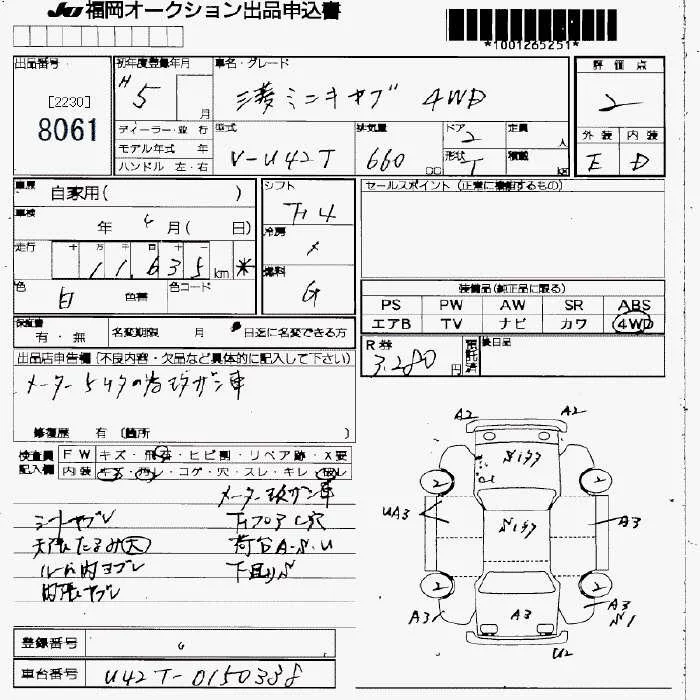 JU 福岡オークション出品申込書
*1001265251*
出品番号
[2230]
8061
初年度登録年月
H 5 月
車名・グレード
三菱 ミニキャブ 4WD
評価点
2
ディーラー・並 行
モデル年式 年
ハンドル 左・右
型式
V-U42T
排気量
660 CC
ドア 2
形状 T
定員 人
積載 kg
外装 内装
E D
車歴
自家用( )
車検
年 4 月( 日)
走行
十 万 千 百 十 一
11,635 km *
色
白 色替
色コード
シフト
F4
冷房
燃料
G
セールスポイント (正常に機能するもの)
装備品(純正品に限る)
PS PW AW SR ABS
エアB TV ナビ カワ 4WD
保証書
有・無
名変期限 月 日迄に名変できる方
R券
3,280 円
預託済
後日品
出品店申告欄 (不良内容・欠品など具体的に記入して下さい)
修復歴 有 〔箇所 〕
検査員記入欄
FW キズ・飛石・ヒビ割・リペア跡・X要
内装 キズ・汚レ・コゲ・穴・スレ・キレ・破レ
メーター改ザン車
シートヤブレ
Fフロアし穴
天張たるみ(大)
荷台A・S・U
内張ヤブレ
下回りS
A2 A2
2 2
UA3
A3
2 2
A3
A3
A3
S1
U2
登録番号
車台番号
U42T-0150338